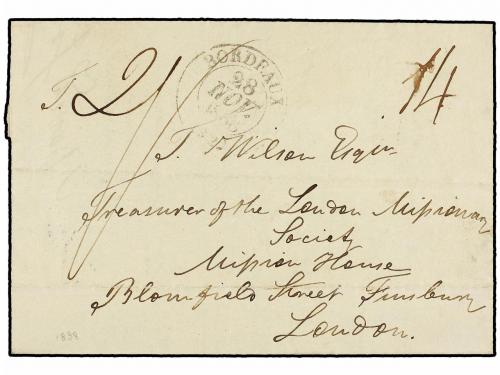 BORDEAUX
28
NOV.
T. 2/
14
T. Wilson Esqr
Treasurer of the London Missionary
Society
Mission House
Blomfield Street Finsbury
London.
1838